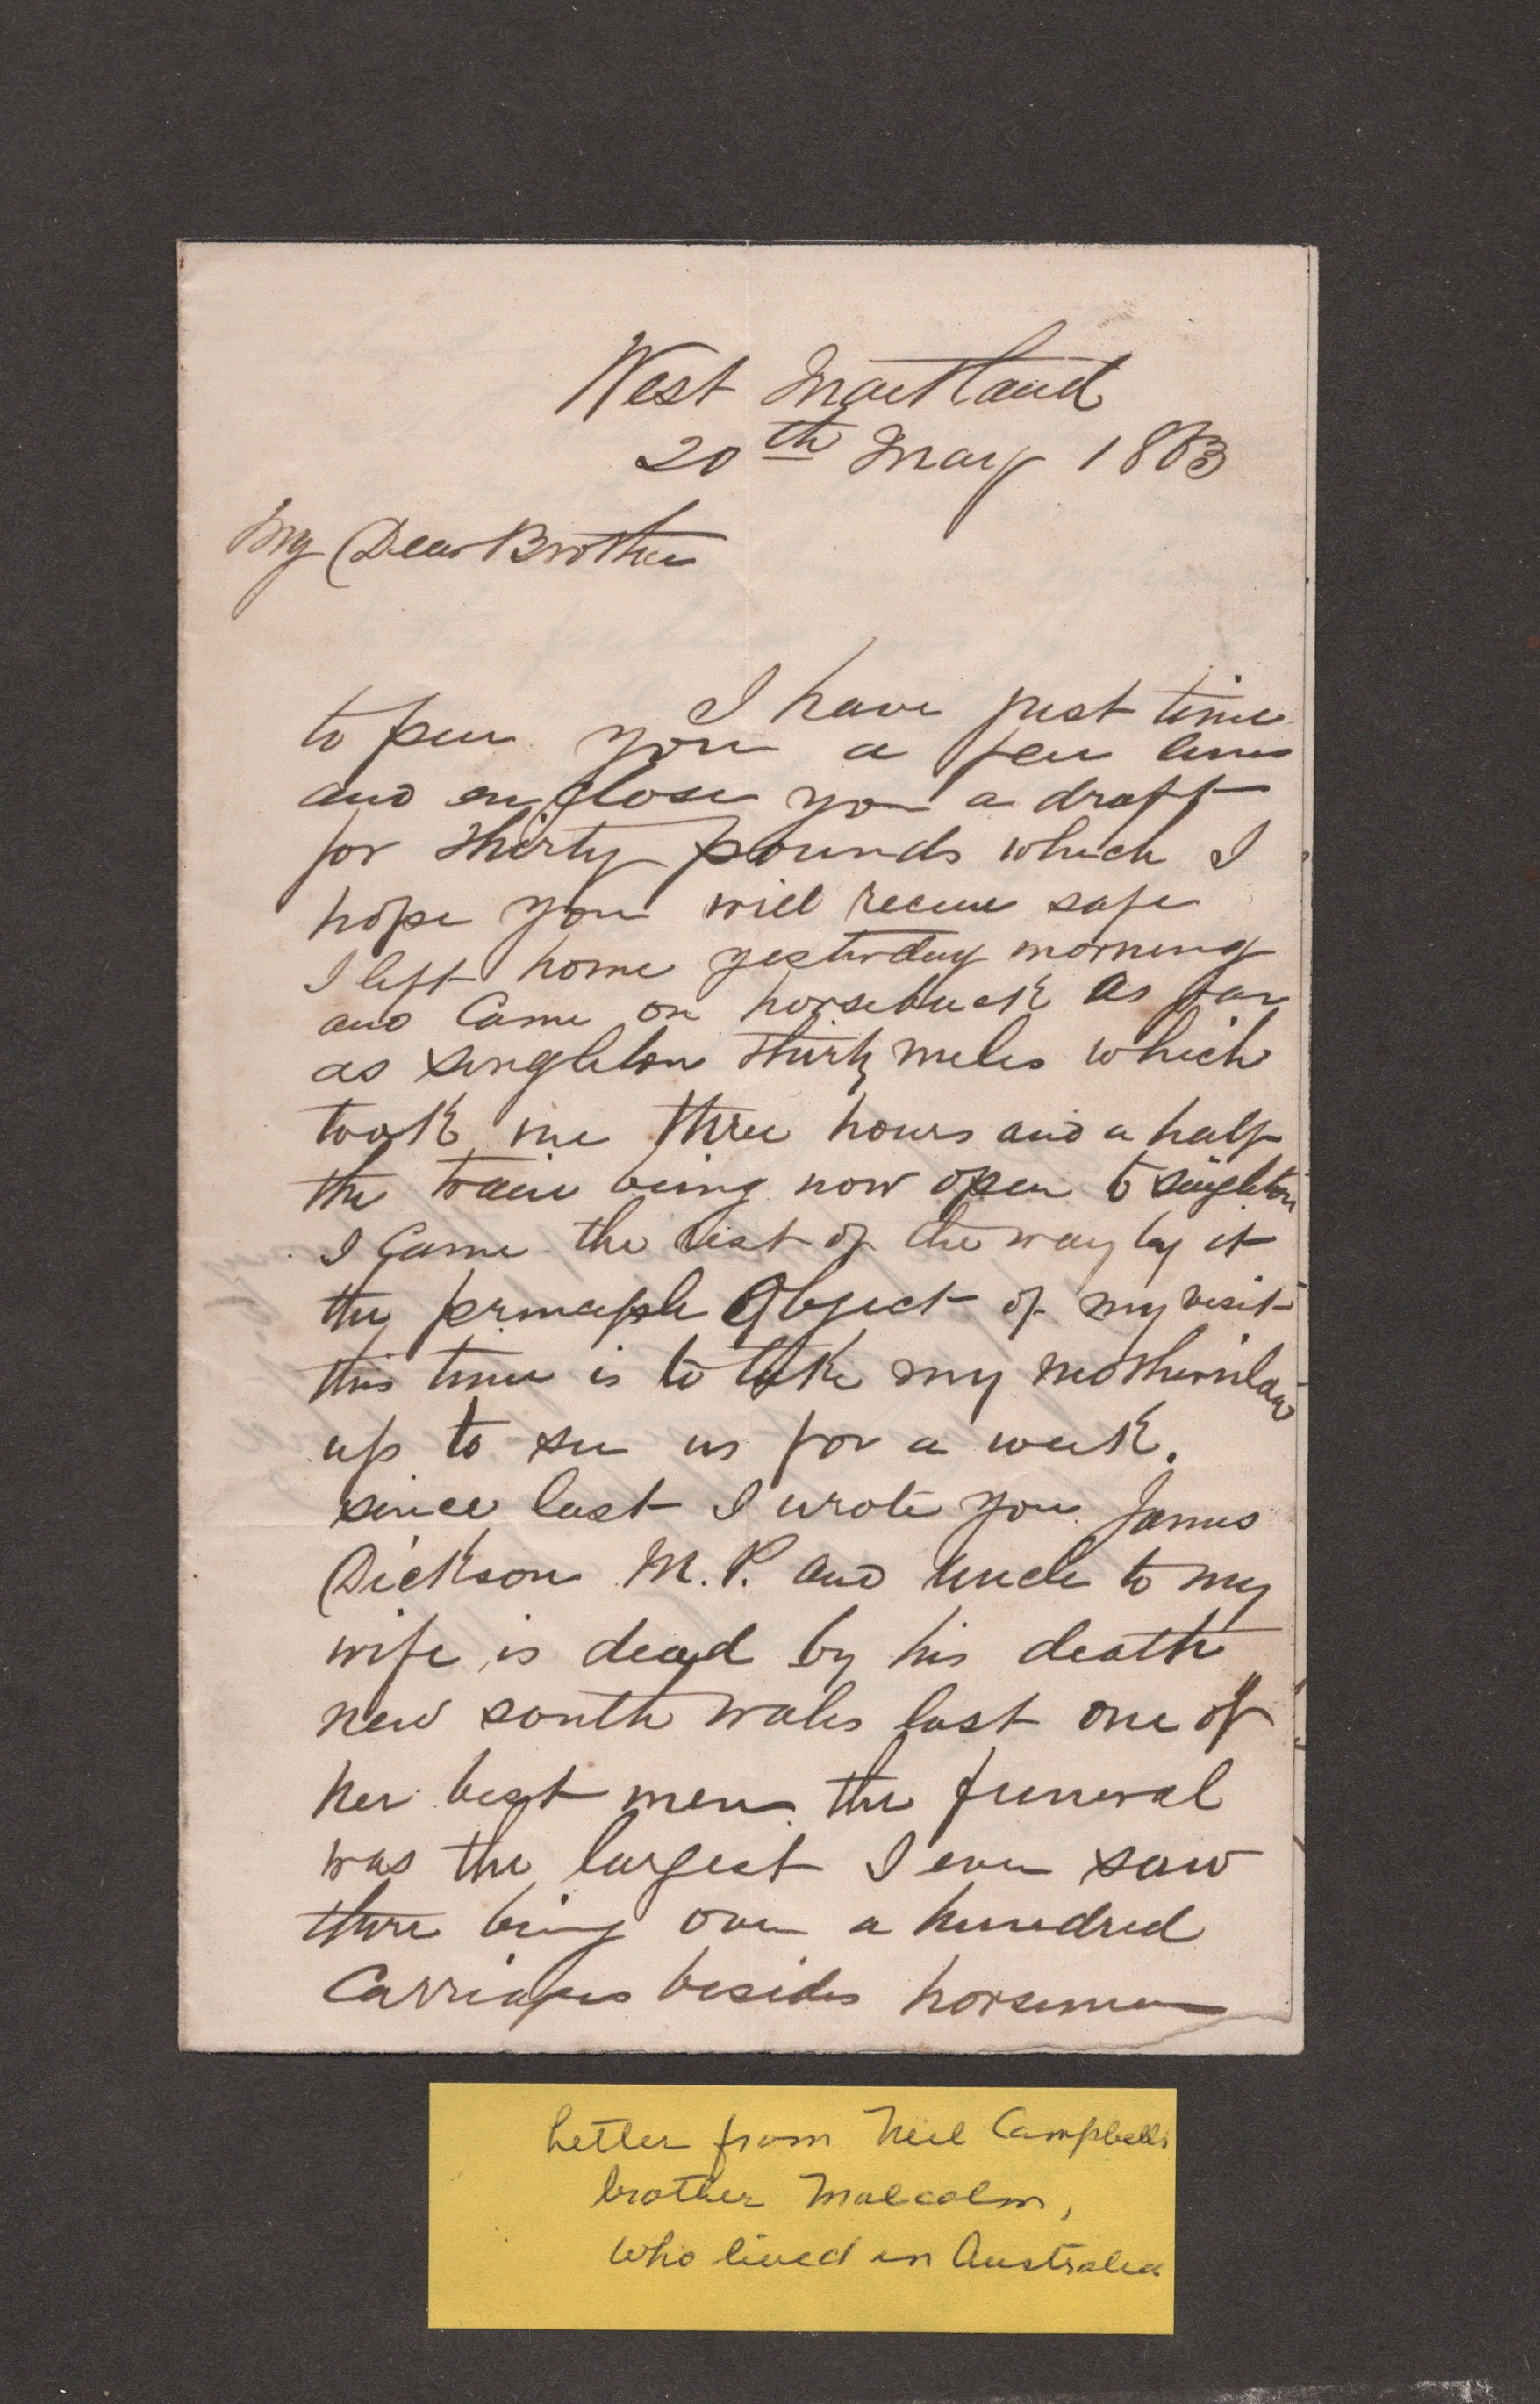 West Maitland
20th May 1863
My Dear Brother
I have just time
to pen you a few lines
and enclose you a draft
for thirty pounds which I
hope you will receive safe
I left home yesterday morning
and Came on horseback as far
as Singleton thirty miles which
took me three hours and a half
the train being now open to singleton
I Came the rest of the way by it
the principle Object of my visit
this time is to take my motherinlaw
up to see us for a week.
since last I wrote you James
Dickson M.P. and uncle to my
wife is dead by his death
new south wales lost one of
her best men the funeral
was the largest I ever saw
there being over a hundred
Carriages besides horsemen
Letter from Neil Campbells
brother Malcolm,
who lived in Australia